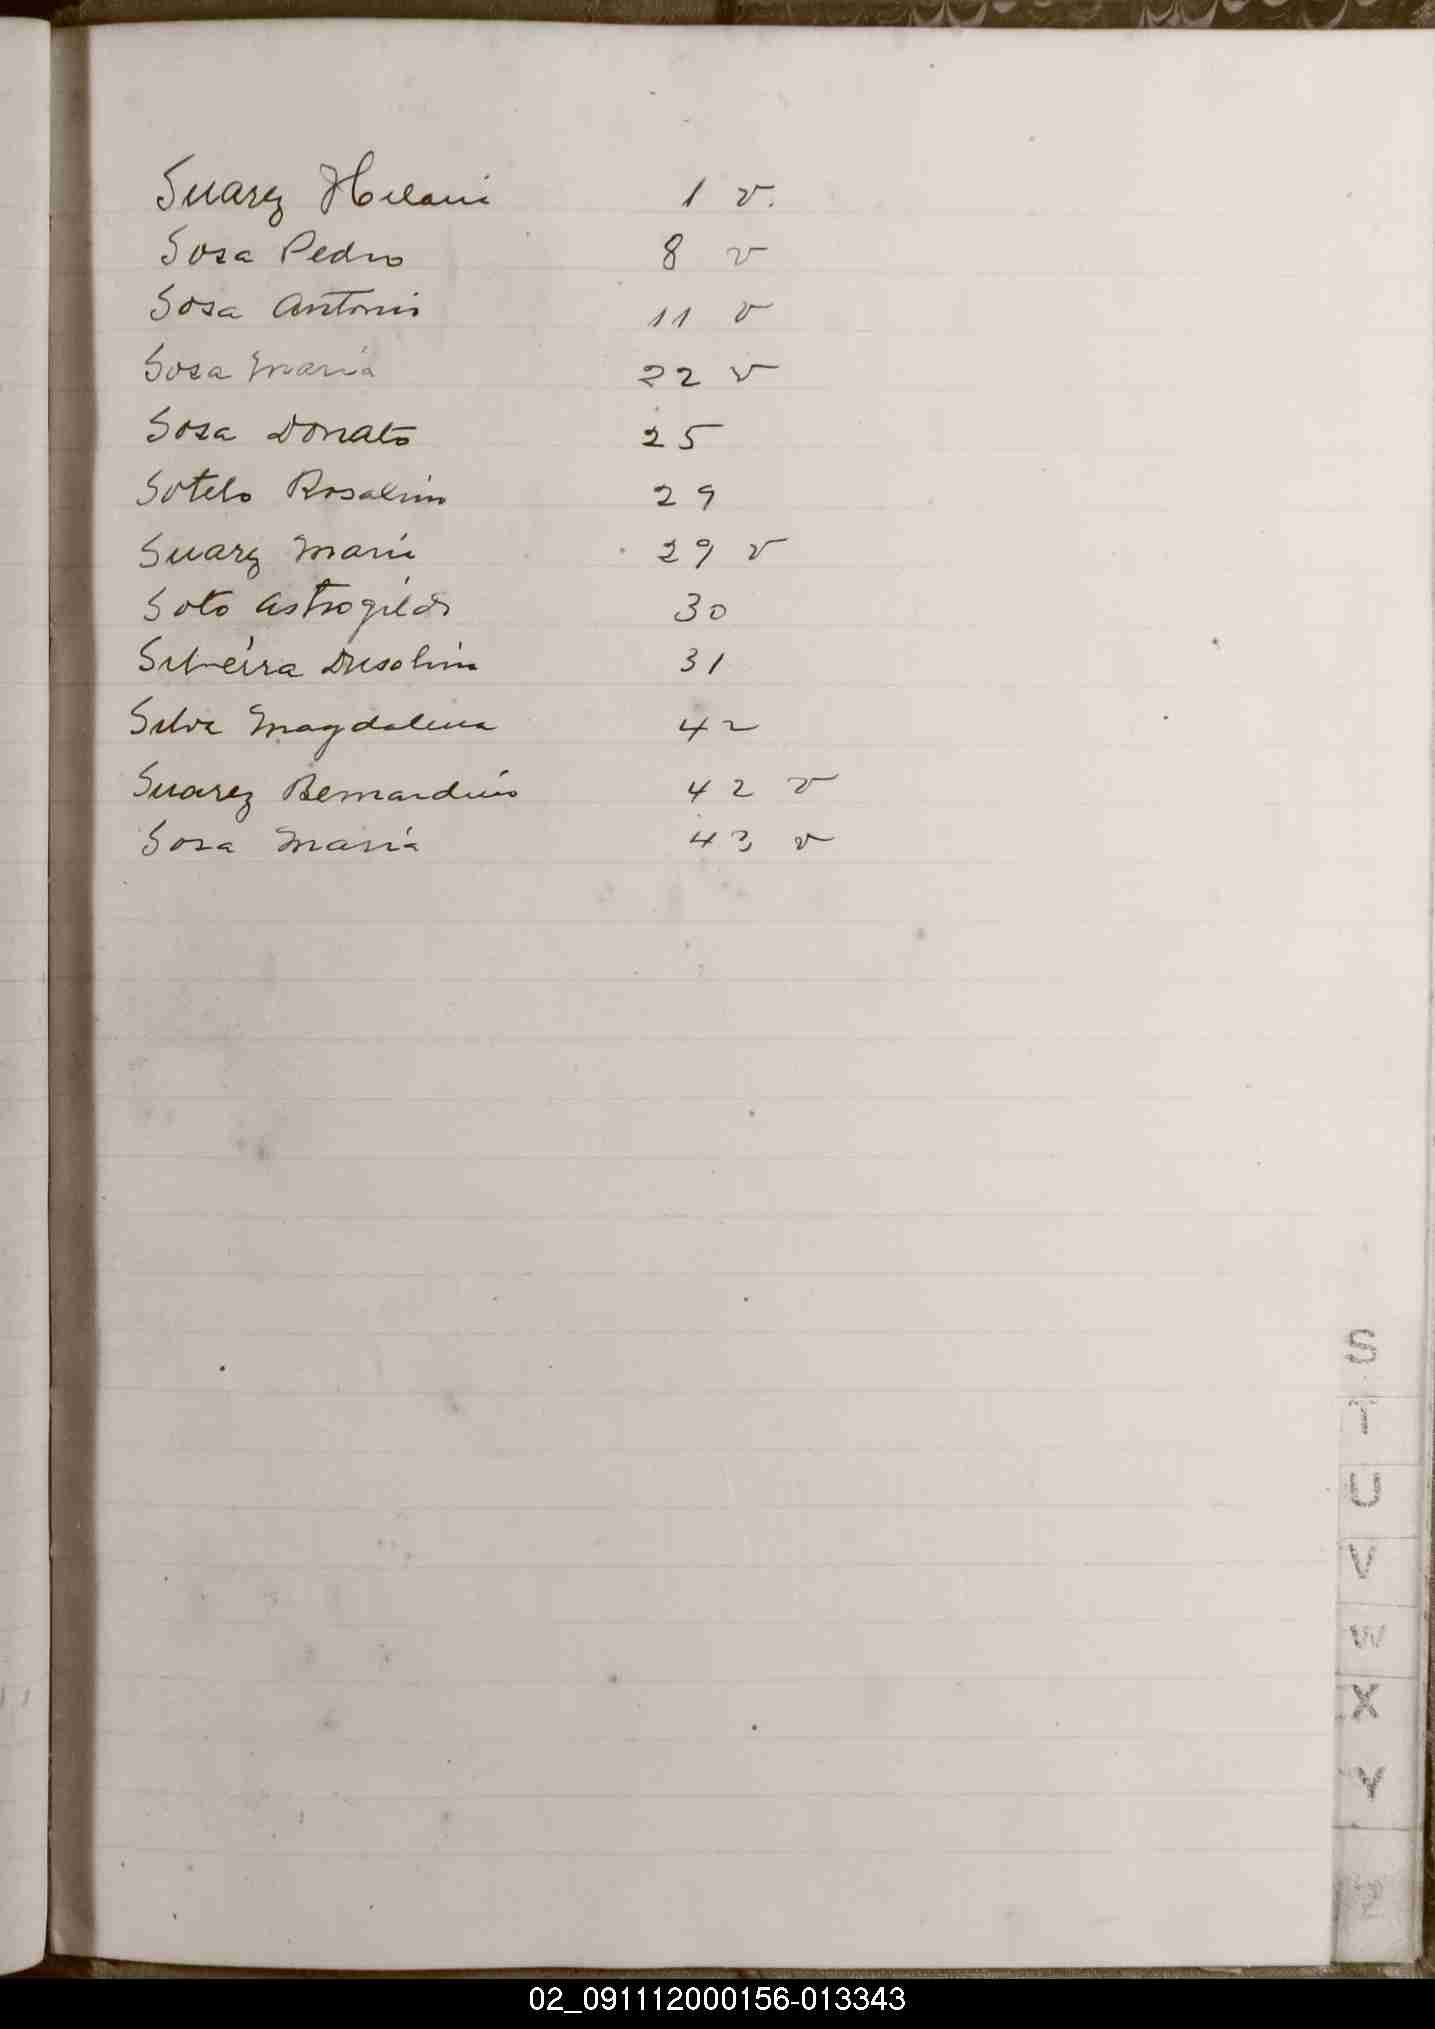 Suarez Hilari 1 v.
Sosa Pedro 8 v
Sosa Antonio 11 v
Sosa Maria 22 v
Sosa Donato 25
Sotelo Rosalino 29
Suarez Maria 29 v
Soto Astrogildo 30
Silveira 31
Silva Magdalena 42
Suarez Bernardino 42 v
Sosa Maria 43 v
S
T
U
V
W
X
Y
Z
02_091112000156-013343